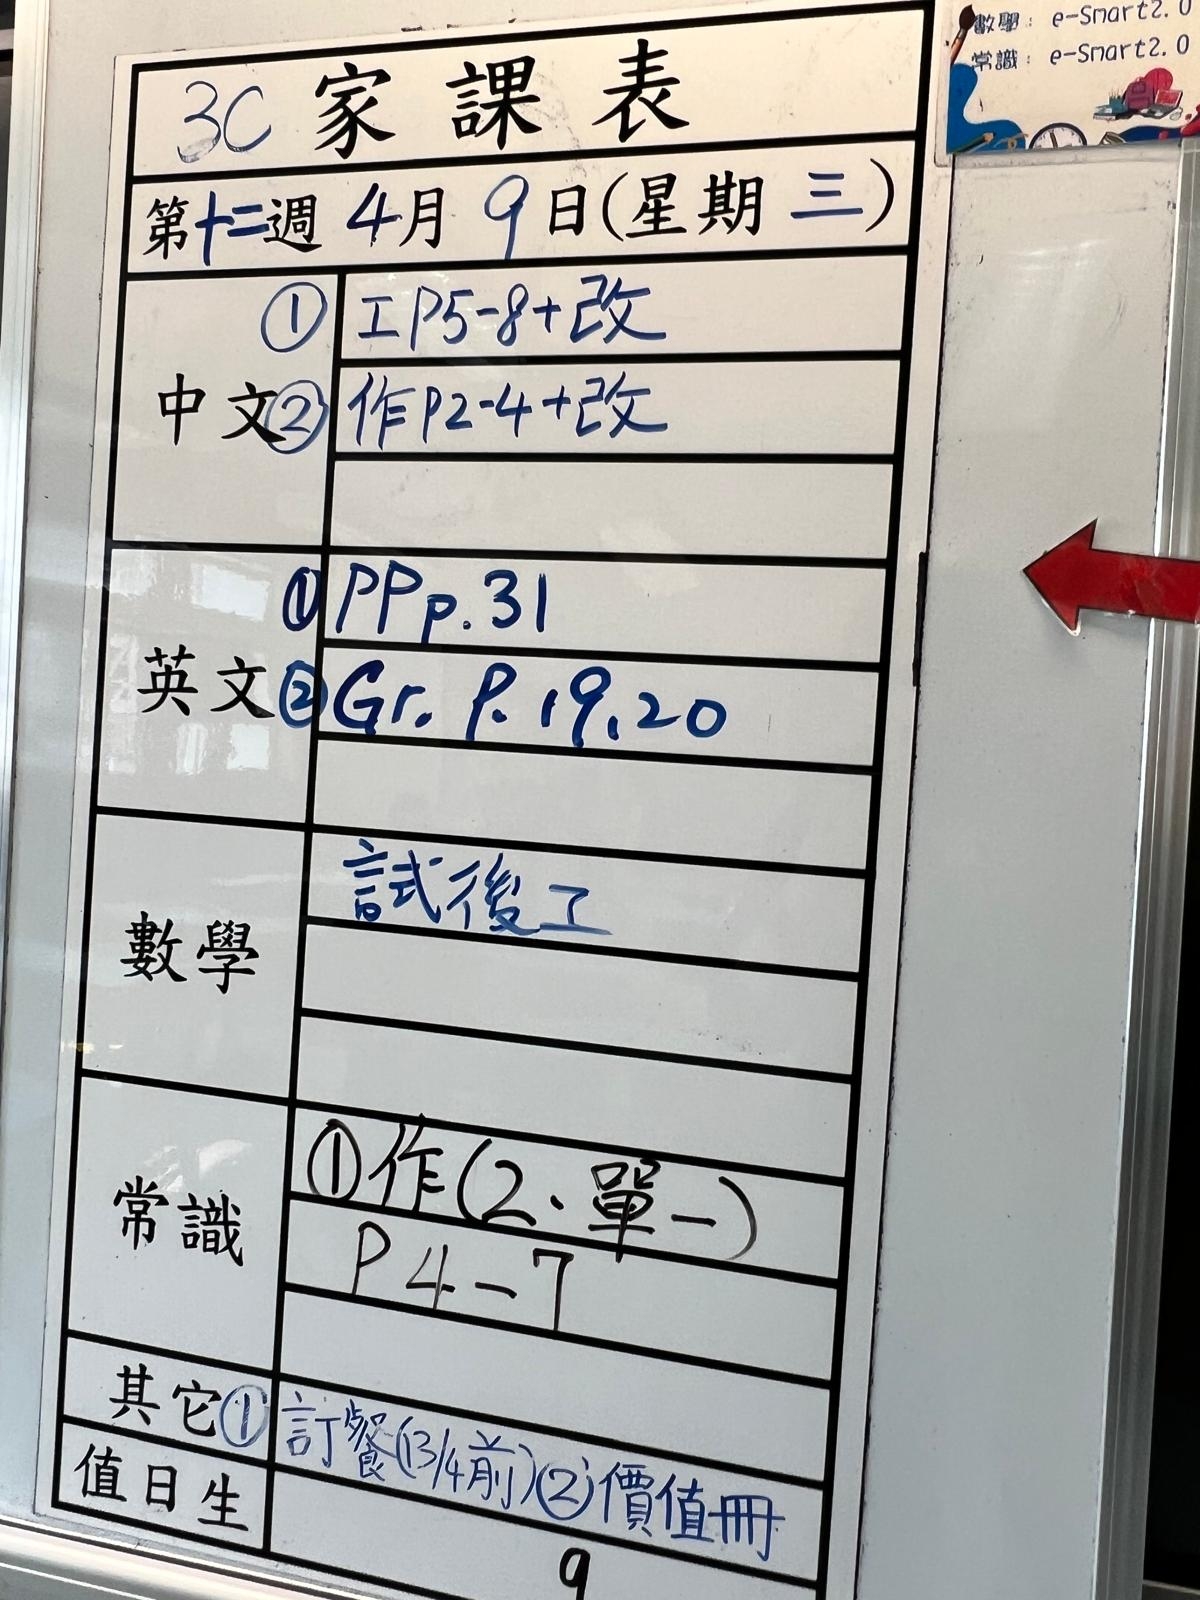 數學： e-Smart2.0
常識： e-Smart2.0
3C 家課表
第十二週 4月 9日(星期 三)
中文
① 工P5-8+改
② 作P2-4+改
英文
① PP p.31
② Gr. P. 19, 20
數學
試後工
常識
①作(2．單一)
P4-7
其它① 訂餐(13/4前)②價值冊
值日生
9